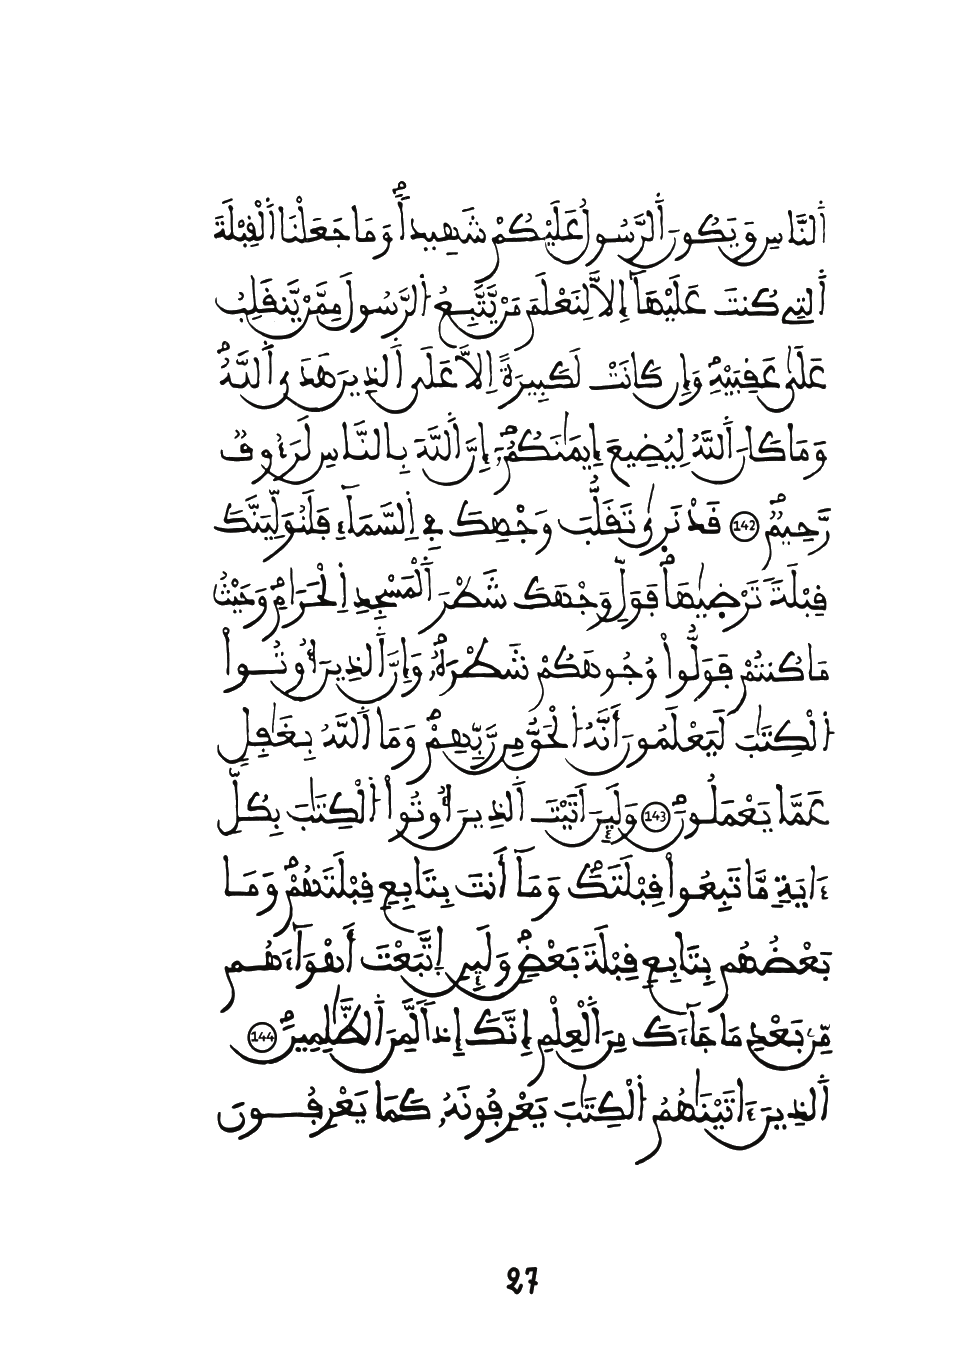 اَ۬لنَّاسِ وَيَكُونَ اَ۬لرَّسُولُ عَلَيْكُمْ شَهِيداٗۖ وَمَا جَعَلْنَا اَ۬لْقِبْلَةَ
اَ۬لتِے كُنتَ عَلَيْهَآ إِلَّا لِنَعْلَمَ مَنْ يَّتَّبِعُ اُ۬لرَّسُولَ مِمَّنْ يَّنقَلِبُ
عَلَىٰ عَقِبَيْهِۖ وَإِن كَانَتْ لَكَبِيرَةً اِلَّا عَلَى اَ۬لذِينَ هَدَى اَ۬للَّهُۖ
وَمَا كَانَ اَ۬للَّهُ لِيُضِيعَ إِيمَٰنَكُمُۥٓۖ إِنَّ اَ۬للَّهَ بِالنَّاسِ لَرَءُوفٞ
رَّحِيمٞۖ 142 قَدْ نَر۪ىٰ تَقَلُّبَ وَجْهِكَ فِے اِ۬لسَّمَآءِ فَلَنُوَلِّيَنَّكَ
قِبْلَةٗ تَرْضَيٰهَاۖ فَوَلِّ وَجْهَكَ شَطْرَ اَ۬لْمَسْجِدِ اِ۬لْحَرَامِۖ وَحَيْثُ
مَا كُنتُمْ فَوَلُّواْ وُجُوهَكُمْ شَطْرَهُۥۖ وَإِنَّ اَ۬لذِينَ أُوتُواْ
اُ۬لْكِتَٰبَ لَيَعْلَمُونَ أَنَّهُ اُ۬لْحَقُّ مِن رَّبِّهِمْۖ وَمَا اَ۬للَّهُ بِغَٰفِلٍ
عَمَّا يَعْمَلُونَۖ 143 وَلَئِنَ اَتَيْتَ اَ۬لذِينَ أُوتُواْ اُ۬لْكِتَٰبَ بِكُلِّ
ءَايَةٖ مَّا تَبِعُواْ قِبْلَتَكَۖ وَمَآ أَنتَ بِتَابِعٖ قِبْلَتَهُمْۖ وَمَا
بَعْضُهُم بِتَابِعٖ قِبْلَةَ بَعْضٖۖ وَلَئِنِ اِ۪تَّبَعْتَ أَهْوَآءَهُم
مِّنۢ بَعْدِ مَا جَآءَكَ مِنَ اَ۬لْعِلْمِ إِنَّكَ إِذاٗ لَّمِنَ اَ۬لظَّٰلِمِينَۖ 144
اَ۬لذِينَ ءَاتَيْنَٰهُمُ اُ۬لْكِتَٰبَ يَعْرِفُونَهُۥ كَمَا يَعْرِفُونَ
27